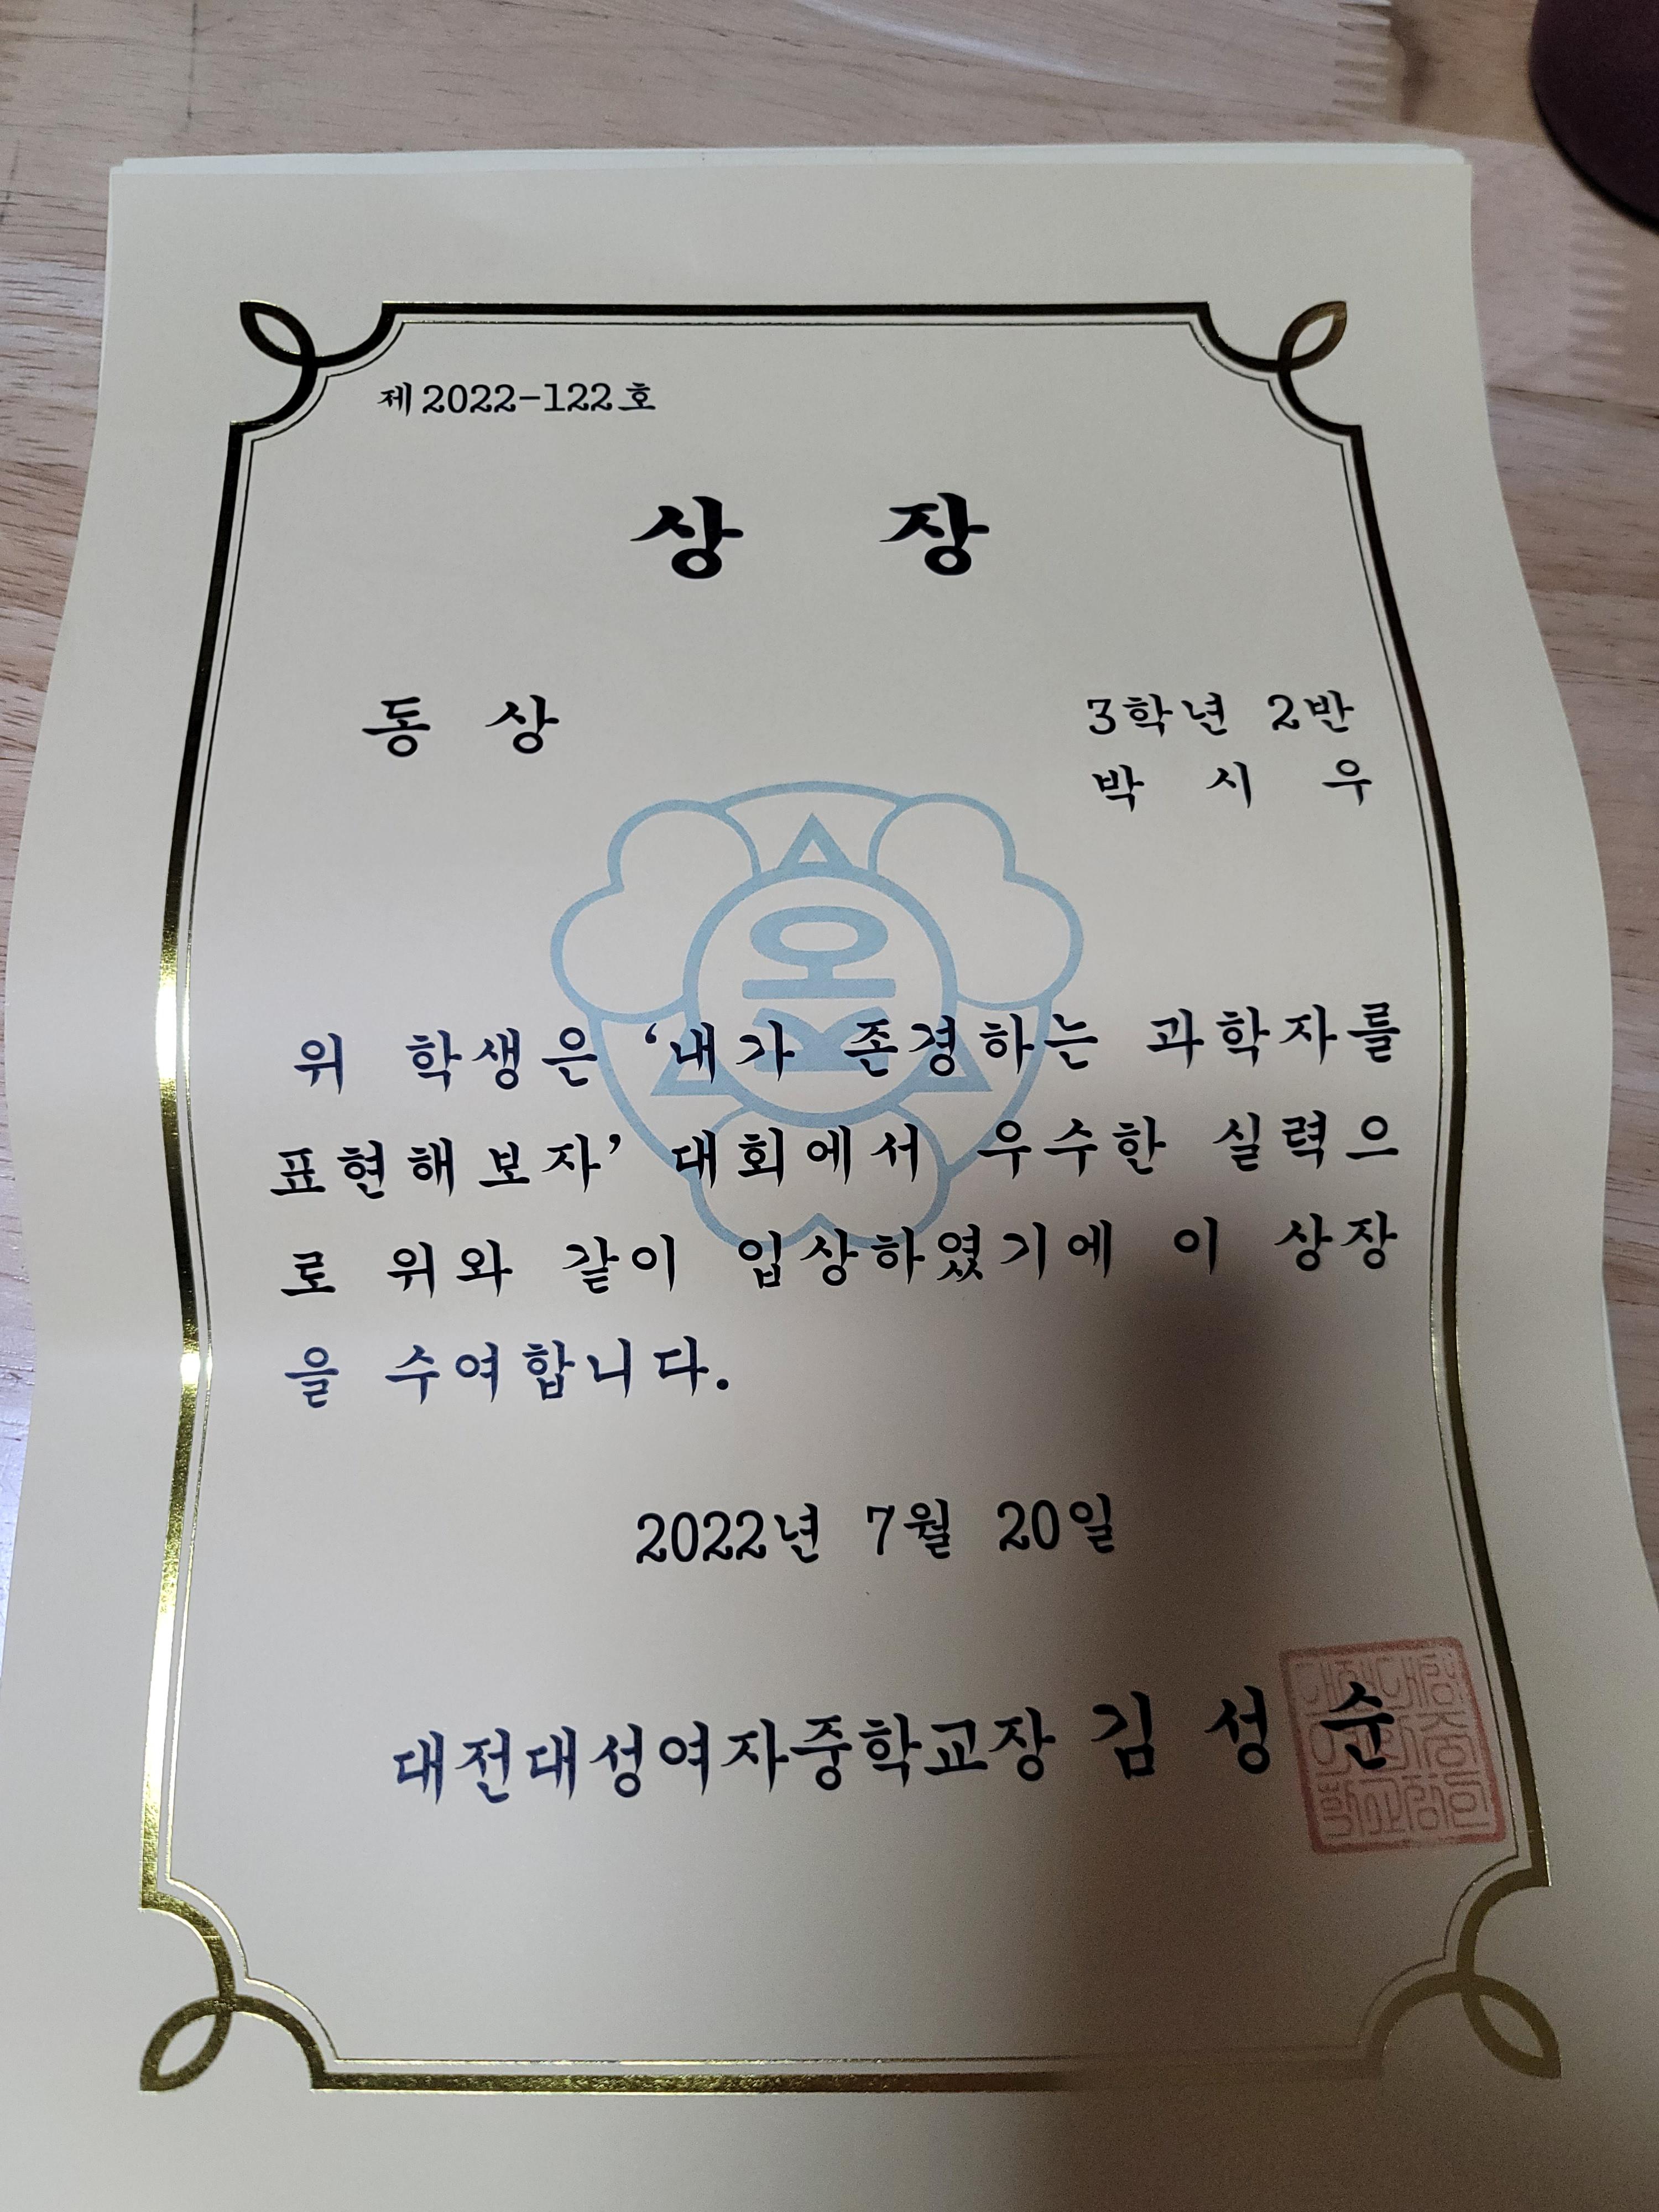 제2022-122호
상 장
동 상
3학년 2반
박 시 우
위 학생은 '내가 존경하는 과학자를
표현해보자' 대회에서 우수한 실력으
로 위와 같이 입상하였기에 이 상장
을 수여합니다.
2022년 7월 20일
대전대성여자중학교장 김 성 순